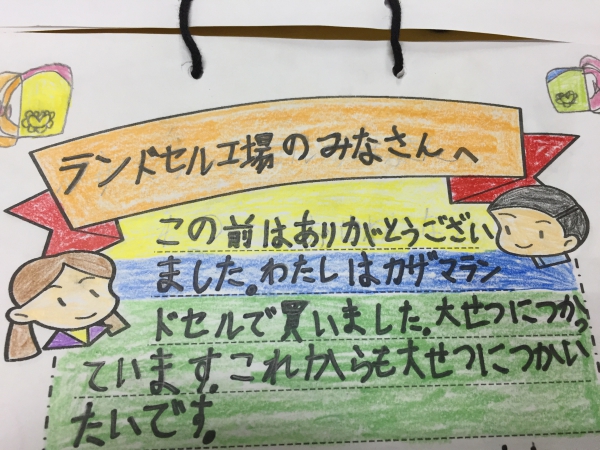 ランドセル工場のみなさんへ
この前はありがとうござい
ました。わたしはカザマラン
ドセルで買いました。大せつにつかっ
ています。これからも大せつにつかい
たいです。